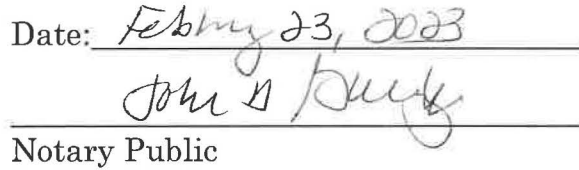 Date: February 23, 2023
John D
Notary Public